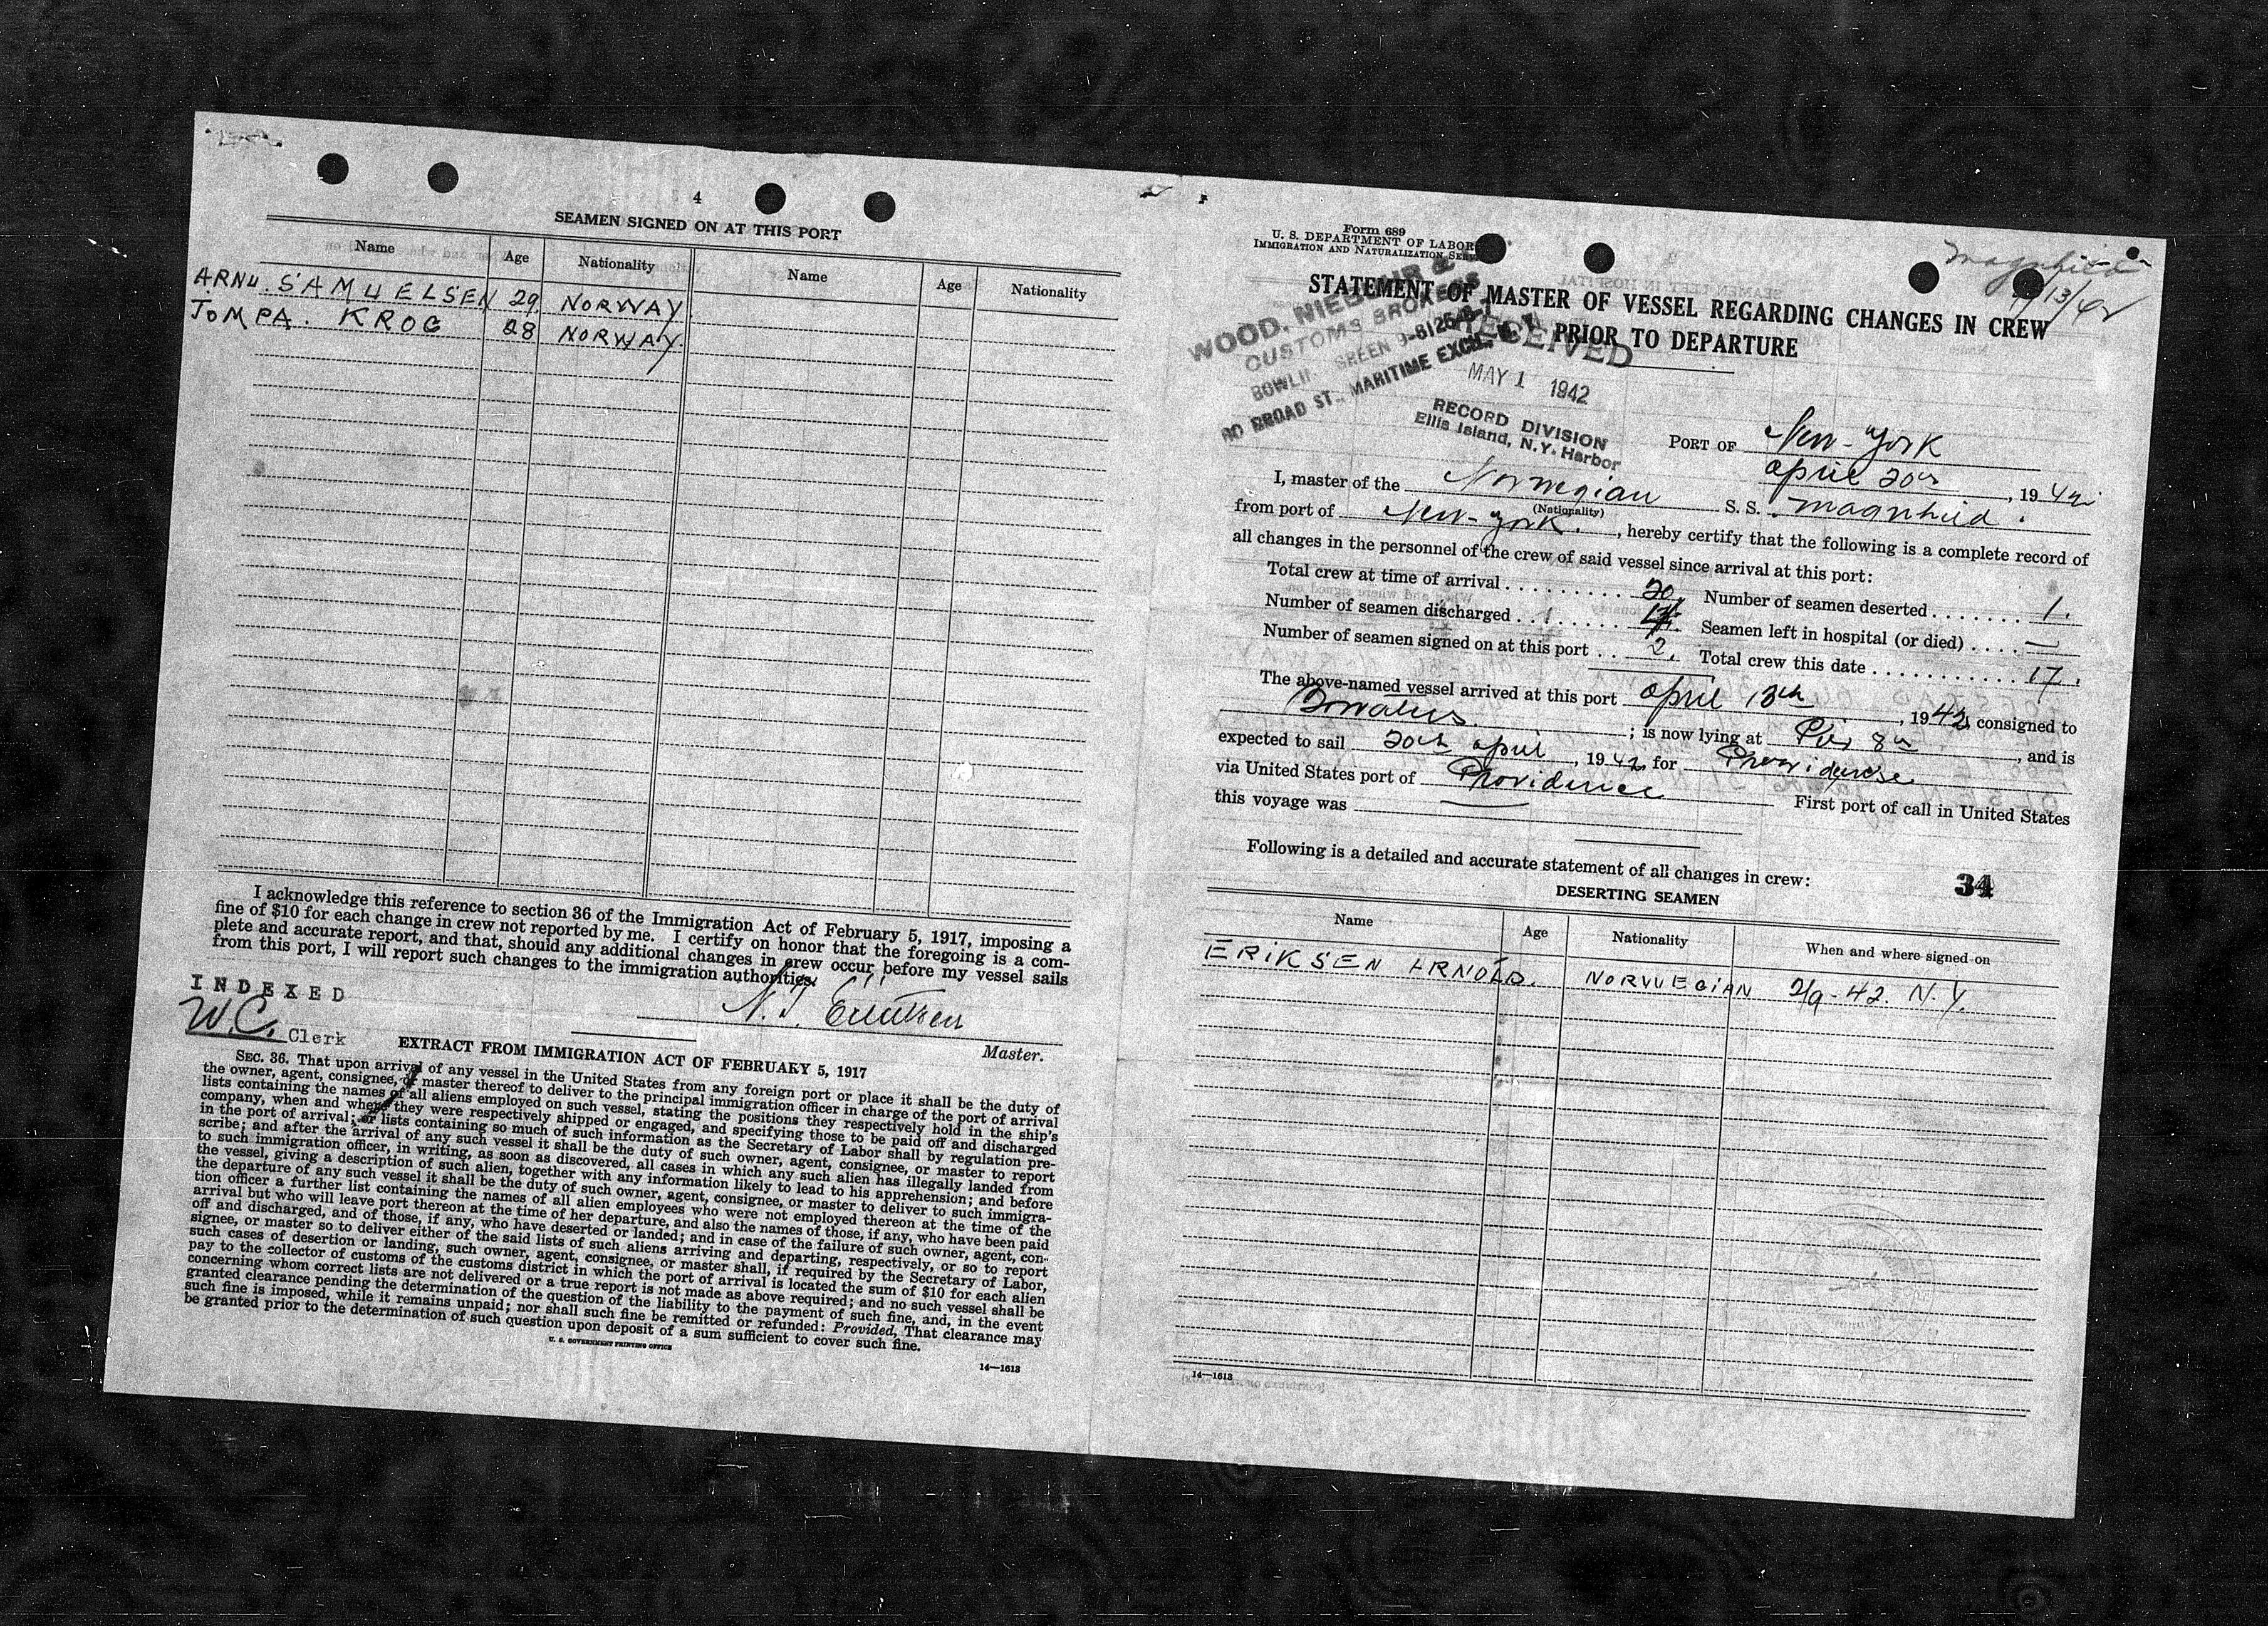 4
SEAMEN SIGNED ON AT THIS PORT
Name Age Nationality Name Age Nationality
ARNU. SAMUELSEN 29. NORWAY
TOMPA. KROG 28 NORWAY.
I acknowledge this reference to section 36 of the Immigration Act of February 5, 1917, imposing a
fine of $10 for each change in crew not reported by me. I certify on honor that the foregoing is a com-
plete and accurate report, and that, should any additional changes in crew occur before my vessel sails
from this port, I will report such changes to the immigration authorities.
INDEXED
W.C. Clerk
Master.
EXTRACT FROM IMMIGRATION ACT OF FEBRUARY 5, 1917
SEC. 36. That upon arrival of any vessel in the United States from any foreign port or place it shall be the duty of
the owner, agent, consignee, or master thereof to deliver to the principal immigration officer in charge of the port of arrival
lists containing the names of all aliens employed on such vessel, stating the positions they respectively hold in the ship's
company, when and where they were respectively shipped or engaged, and specifying those to be paid off and discharged
in the port of arrival; or lists containing so much of such information as the Secretary of Labor shall by regulation pre-
scribe; and after the arrival of any such vessel it shall be the duty of such owner, agent, consignee, or master to report
to such immigration officer, in writing, as soon as discovered, all cases in which any such alien has illegally landed from
the vessel, giving a description of such alien, together with any information likely to lead to his apprehension; and before
the departure of any such vessel it shall be the duty of such owner, agent, consignee, or master to deliver to such immigra-
tion officer a further list containing the names of all alien employees who were not employed thereon at the time of the
arrival but who will leave port thereon at the time of her departure, and also the names of those, if any, who have been paid
off and discharged, and of those, if any, who have deserted or landed; and in case of the failure of such owner, agent, con-
signee, or master so to deliver either of the said lists of such aliens arriving and departing, respectively, or so to report
such cases of desertion or landing, such owner, agent, consignee, or master shall, if required by the Secretary of Labor,
pay to the collector of customs of the customs district in which the port of arrival is located the sum of $10 for each alien
concerning whom correct lists are not delivered or a true report is not made as above required; and no such vessel shall be
granted clearance pending the determination of the question of the liability to the payment of such fine, and, in the event
such fine is imposed, while it remains unpaid; nor shall such fine be remitted or refunded: Provided, That clearance may
be granted prior to the determination of such question upon deposit of a sum sufficient to cover such fine.
U. S. GOVERNMENT PRINTING OFFICE
14—1613
Form 689
U. S. DEPARTMENT OF LABOR
IMMIGRATION AND NATURALIZATION SERV
Magnhild
4/13/42
STATEMENT OF MASTER OF VESSEL REGARDING CHANGES IN CREW
PRIOR TO DEPARTURE
WOOD, NIEBUHR &
CUSTOMS BROKERS
BOWLING GREEN 9-8125-6-7
80 BROAD ST., MARITIME EXCH., N. Y.
RECEIVED
MAY 1 1942
RECORD DIVISION
Ellis Island, N.Y. Harbor
PORT OF New-York
April 20th, 1942
I, master of the Norwegian S. S. Magnhild.
(Nationality)
from port of New-York., hereby certify that the following is a complete record of
all changes in the personnel of the crew of said vessel since arrival at this port:
Total crew at time of arrival 20. Number of seamen deserted 1.
Number of seamen discharged Seamen left in hospital (or died) —
Number of seamen signed on at this port 2. Total crew this date 17.
The above-named vessel arrived at this port April 13th, 1942, consigned to
; is now lying at Pier 8th, and is
expected to sail 20th April, 1942, for Providence
via United States port of Providence First port of call in United States
this voyage was —
Following is a detailed and accurate statement of all changes in crew:
34
DESERTING SEAMEN
Name Age Nationality When and where signed on
ERIKSEN ARNOLD. NORWEGIAN 2/9-42. N.Y.
14—1613